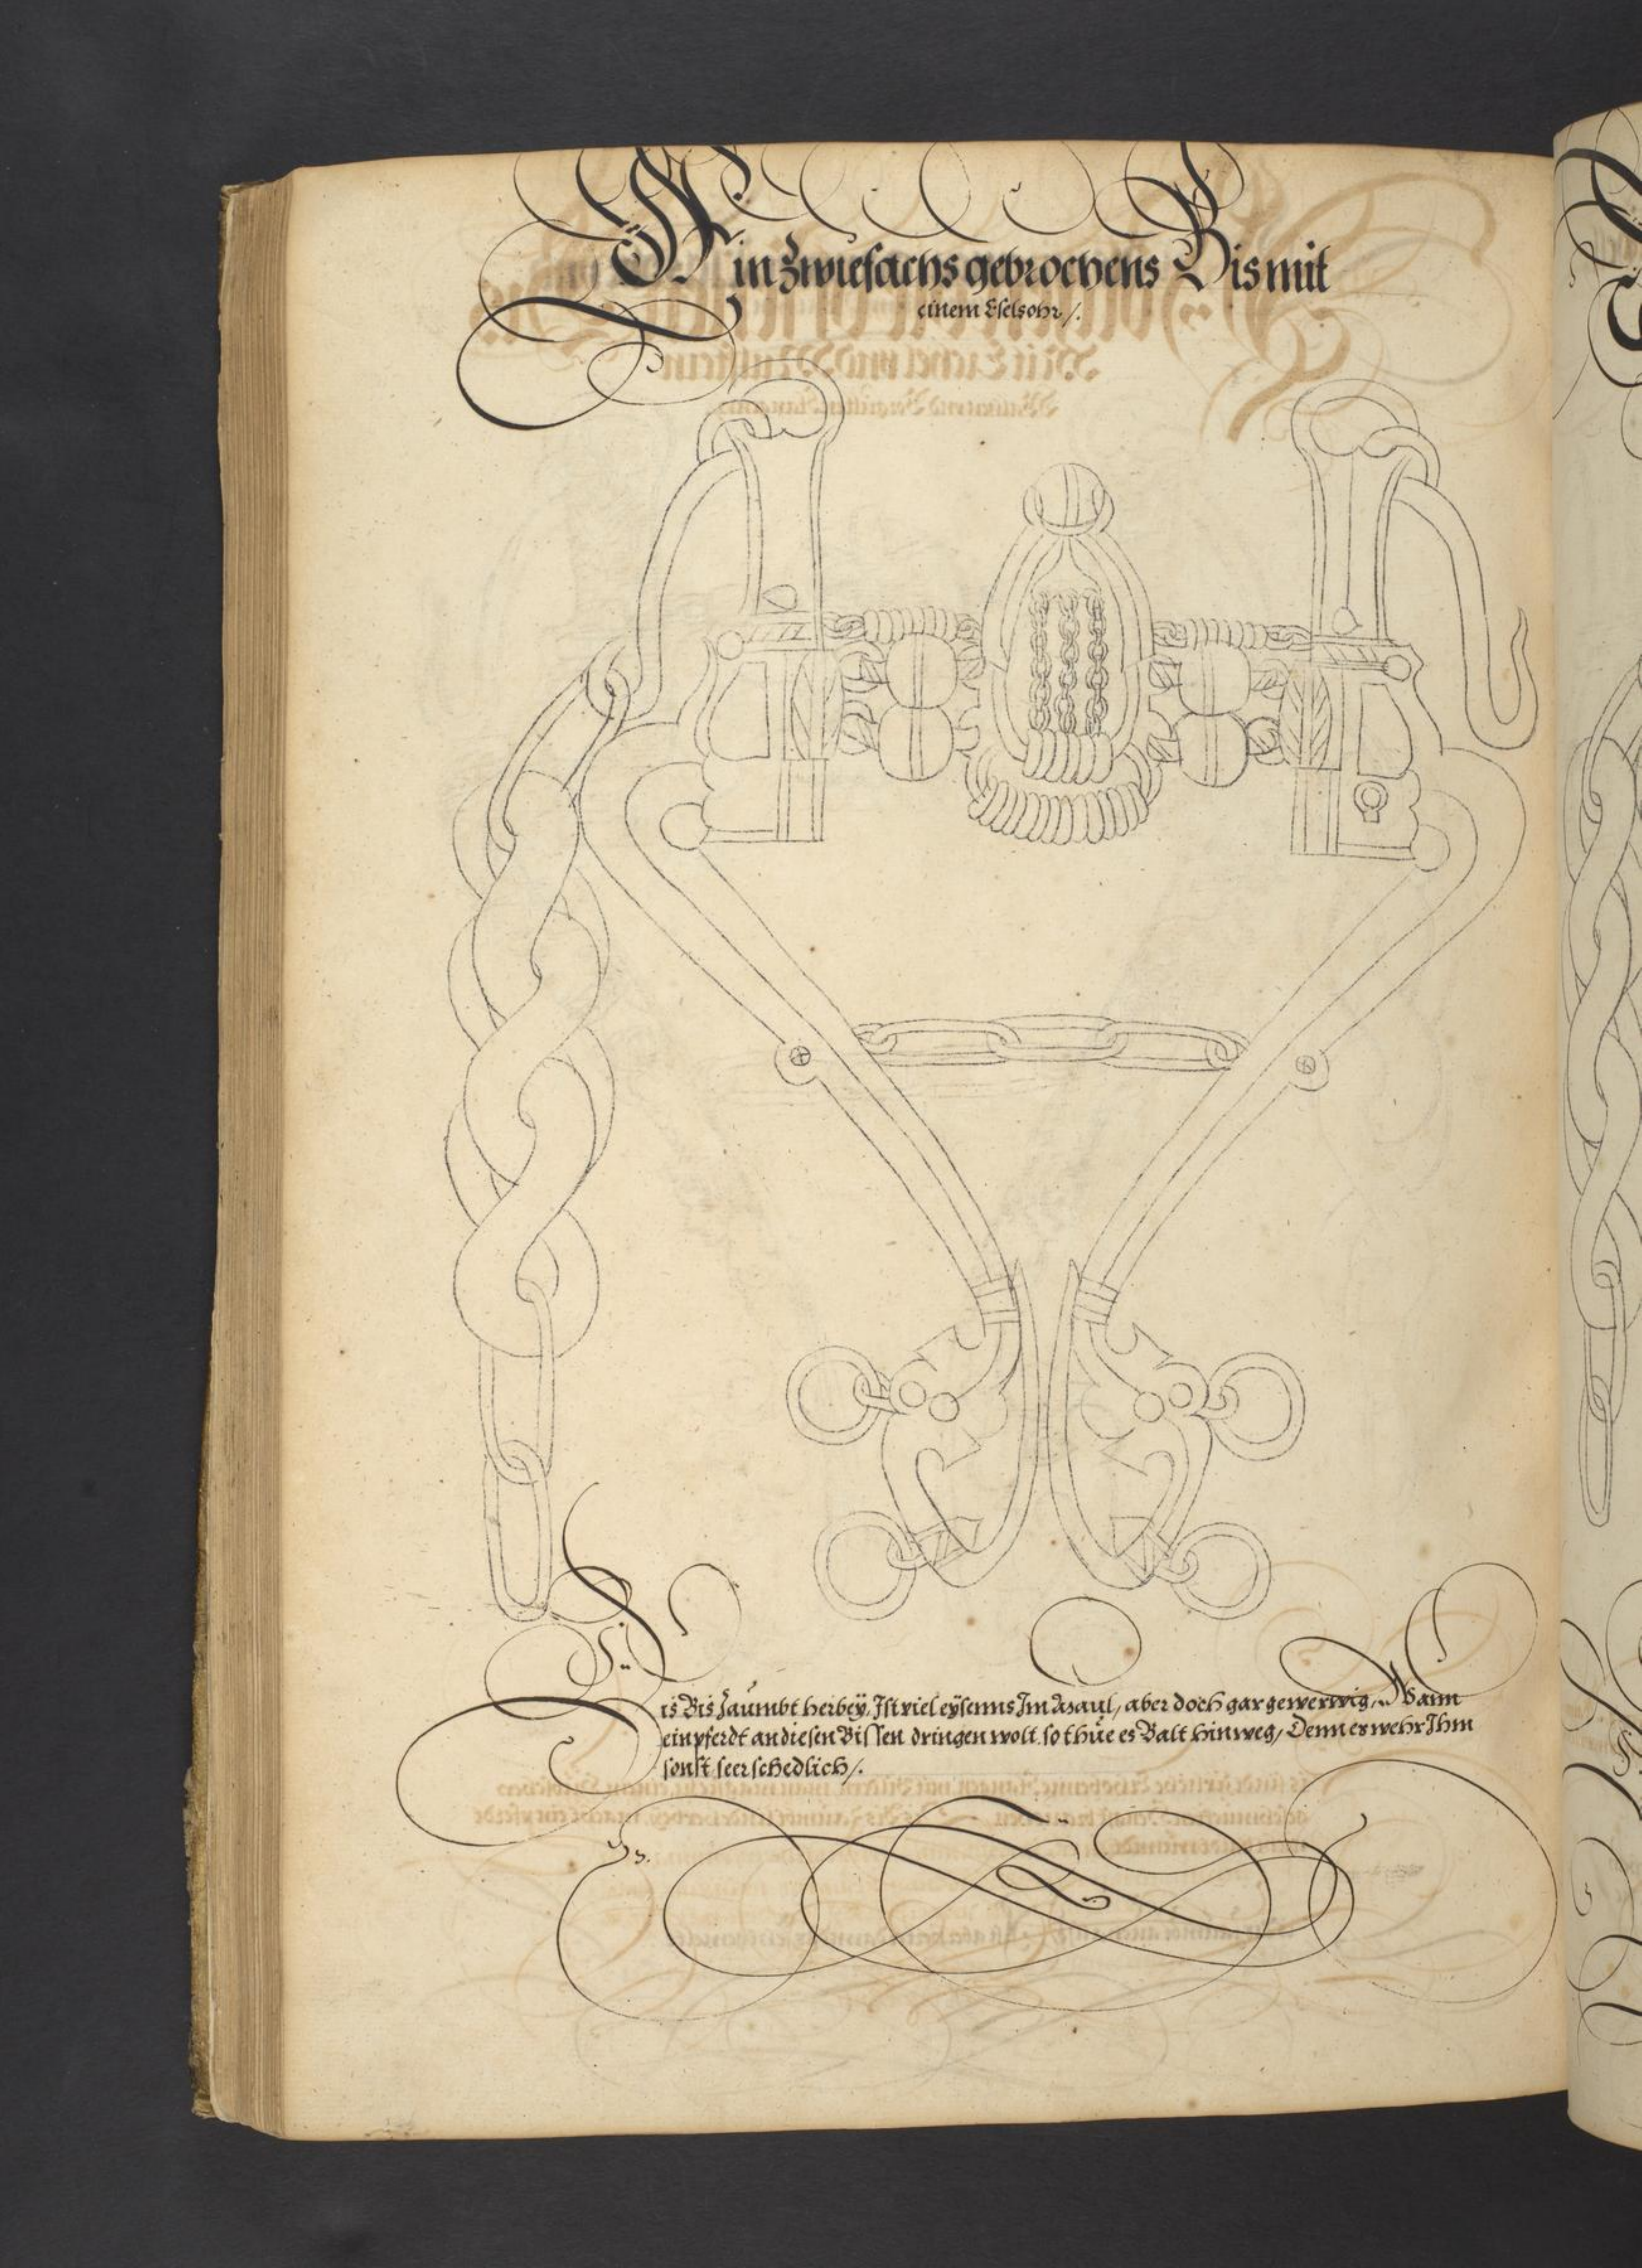 Ein Zwiefachs gebrochens Bis mit
einem Eselsohr /.
Dis Bis Zaümbt herbeÿ, Ist viel eÿsenns Im Maul, aber doch gar gewerwig, Wann
ein pferdt an diesen Bissen dringen wolt. so thüe es Balt hinweg, Denn es wehr Ihm
sonst seer schedlich /.